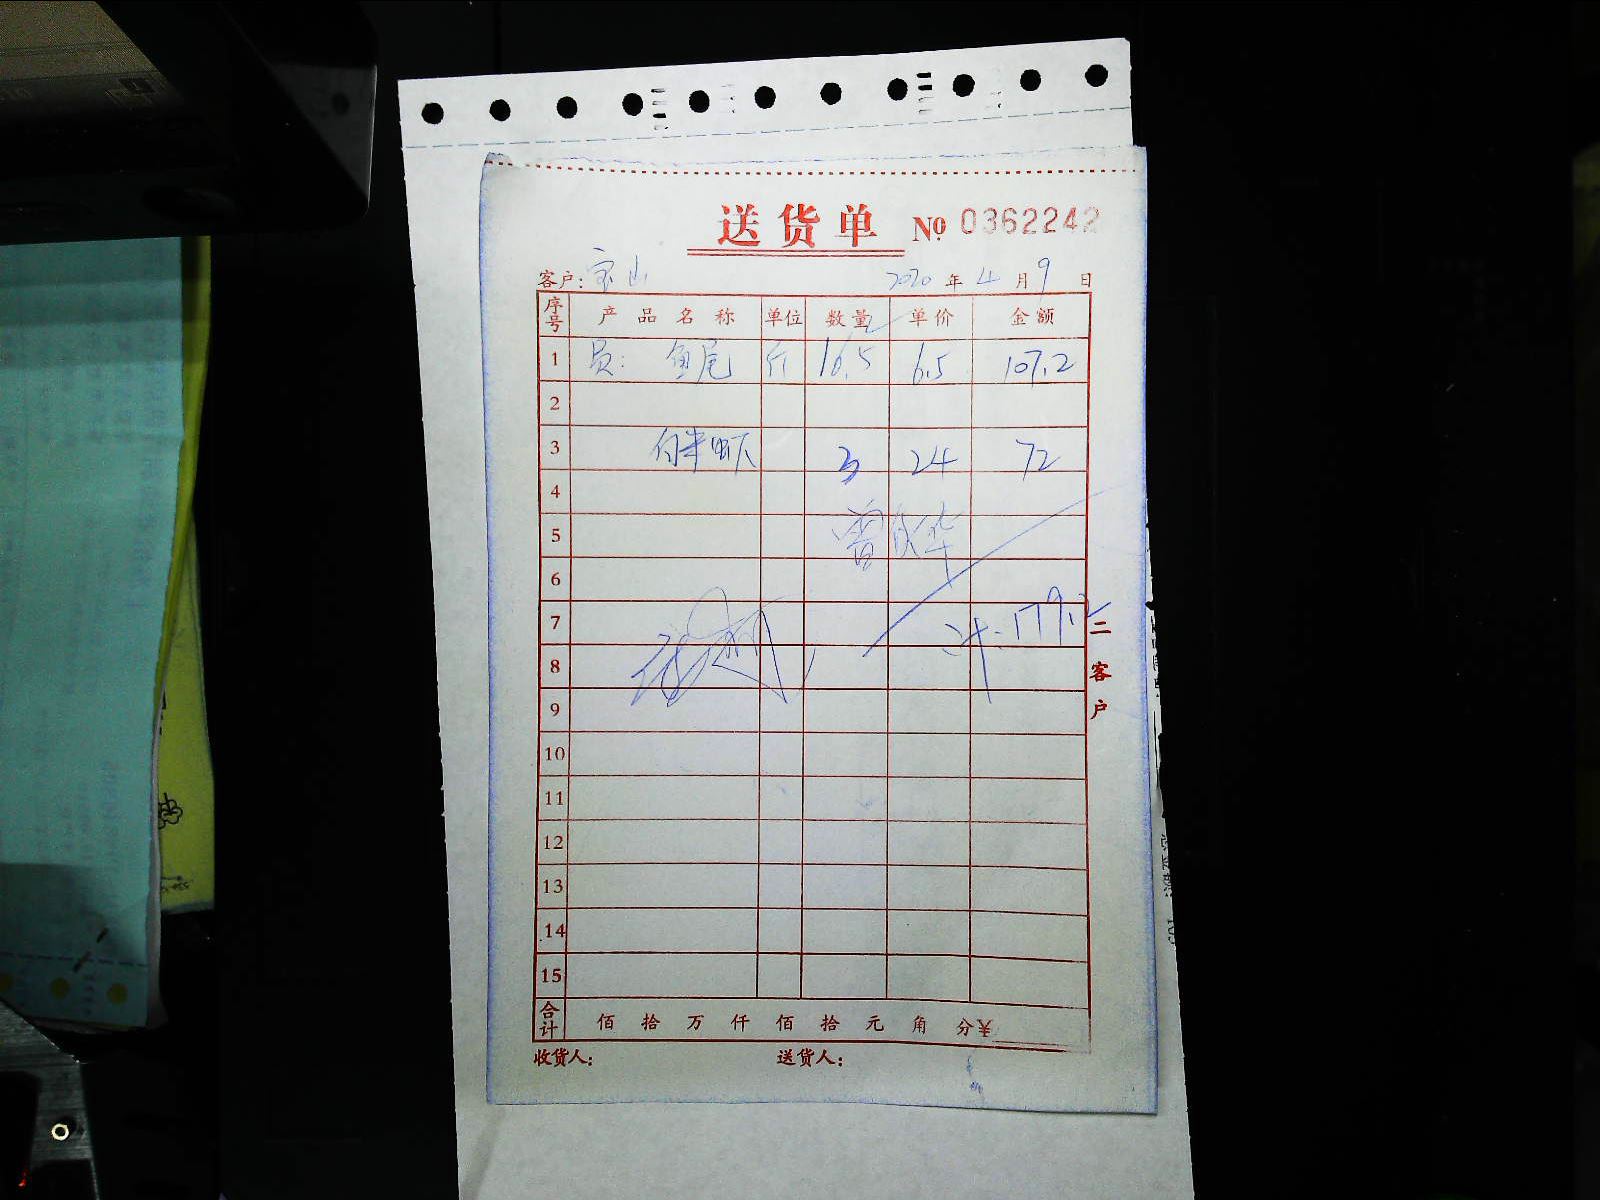 送货单 № 0362242
客户: 宝山 2020 年 4 月 9 日
序号 产品名称 单位 数量 单价 金额
1 员: 鱼尾 斤 16.5 6.5 107.2
2
3 虾 3 24 72
4
5
6
7 计: 179.2
8
9
10
11
12
13
14
15
合计 佰 拾 万 仟 佰 拾 元 角 分 ¥
收货人: 送货人:
二客户